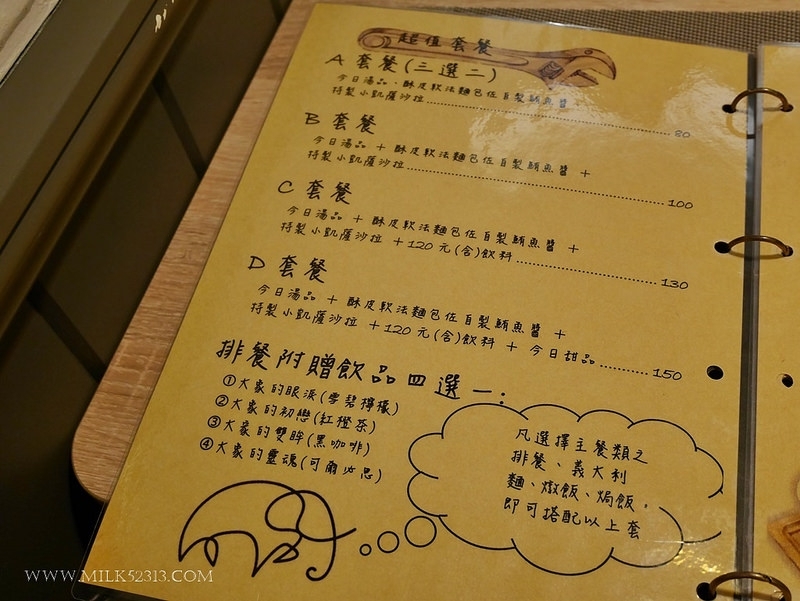 超值套餐
A 套餐(三選二)
今日湯品、酥皮軟法麵包佐自製鮪魚醬、
特製小凱薩沙拉 80
B 套餐
今日湯品 + 酥皮軟法麵包佐自製鮪魚醬 +
特製小凱薩沙拉 100
C 套餐
今日湯品 + 酥皮軟法麵包佐自製鮪魚醬 +
特製小凱薩沙拉 +120元(含)飲料 130
D 套餐
今日湯品 + 酥皮軟法麵包佐自製鮪魚醬 +
特製小凱薩沙拉 +120元(含)飲料 + 今日甜品 150
排餐附贈飲品四選一:
①大象的眼淚(雪碧檸檬)
②大象的初戀(紅橙茶)
③大象的雙眸(黑咖啡)
④大象的靈魂(可爾必思)
凡選擇主餐類之
排餐、義大利
麵、燉飯、焗飯,
即可搭配以上套
WWW.MILK52313.COM